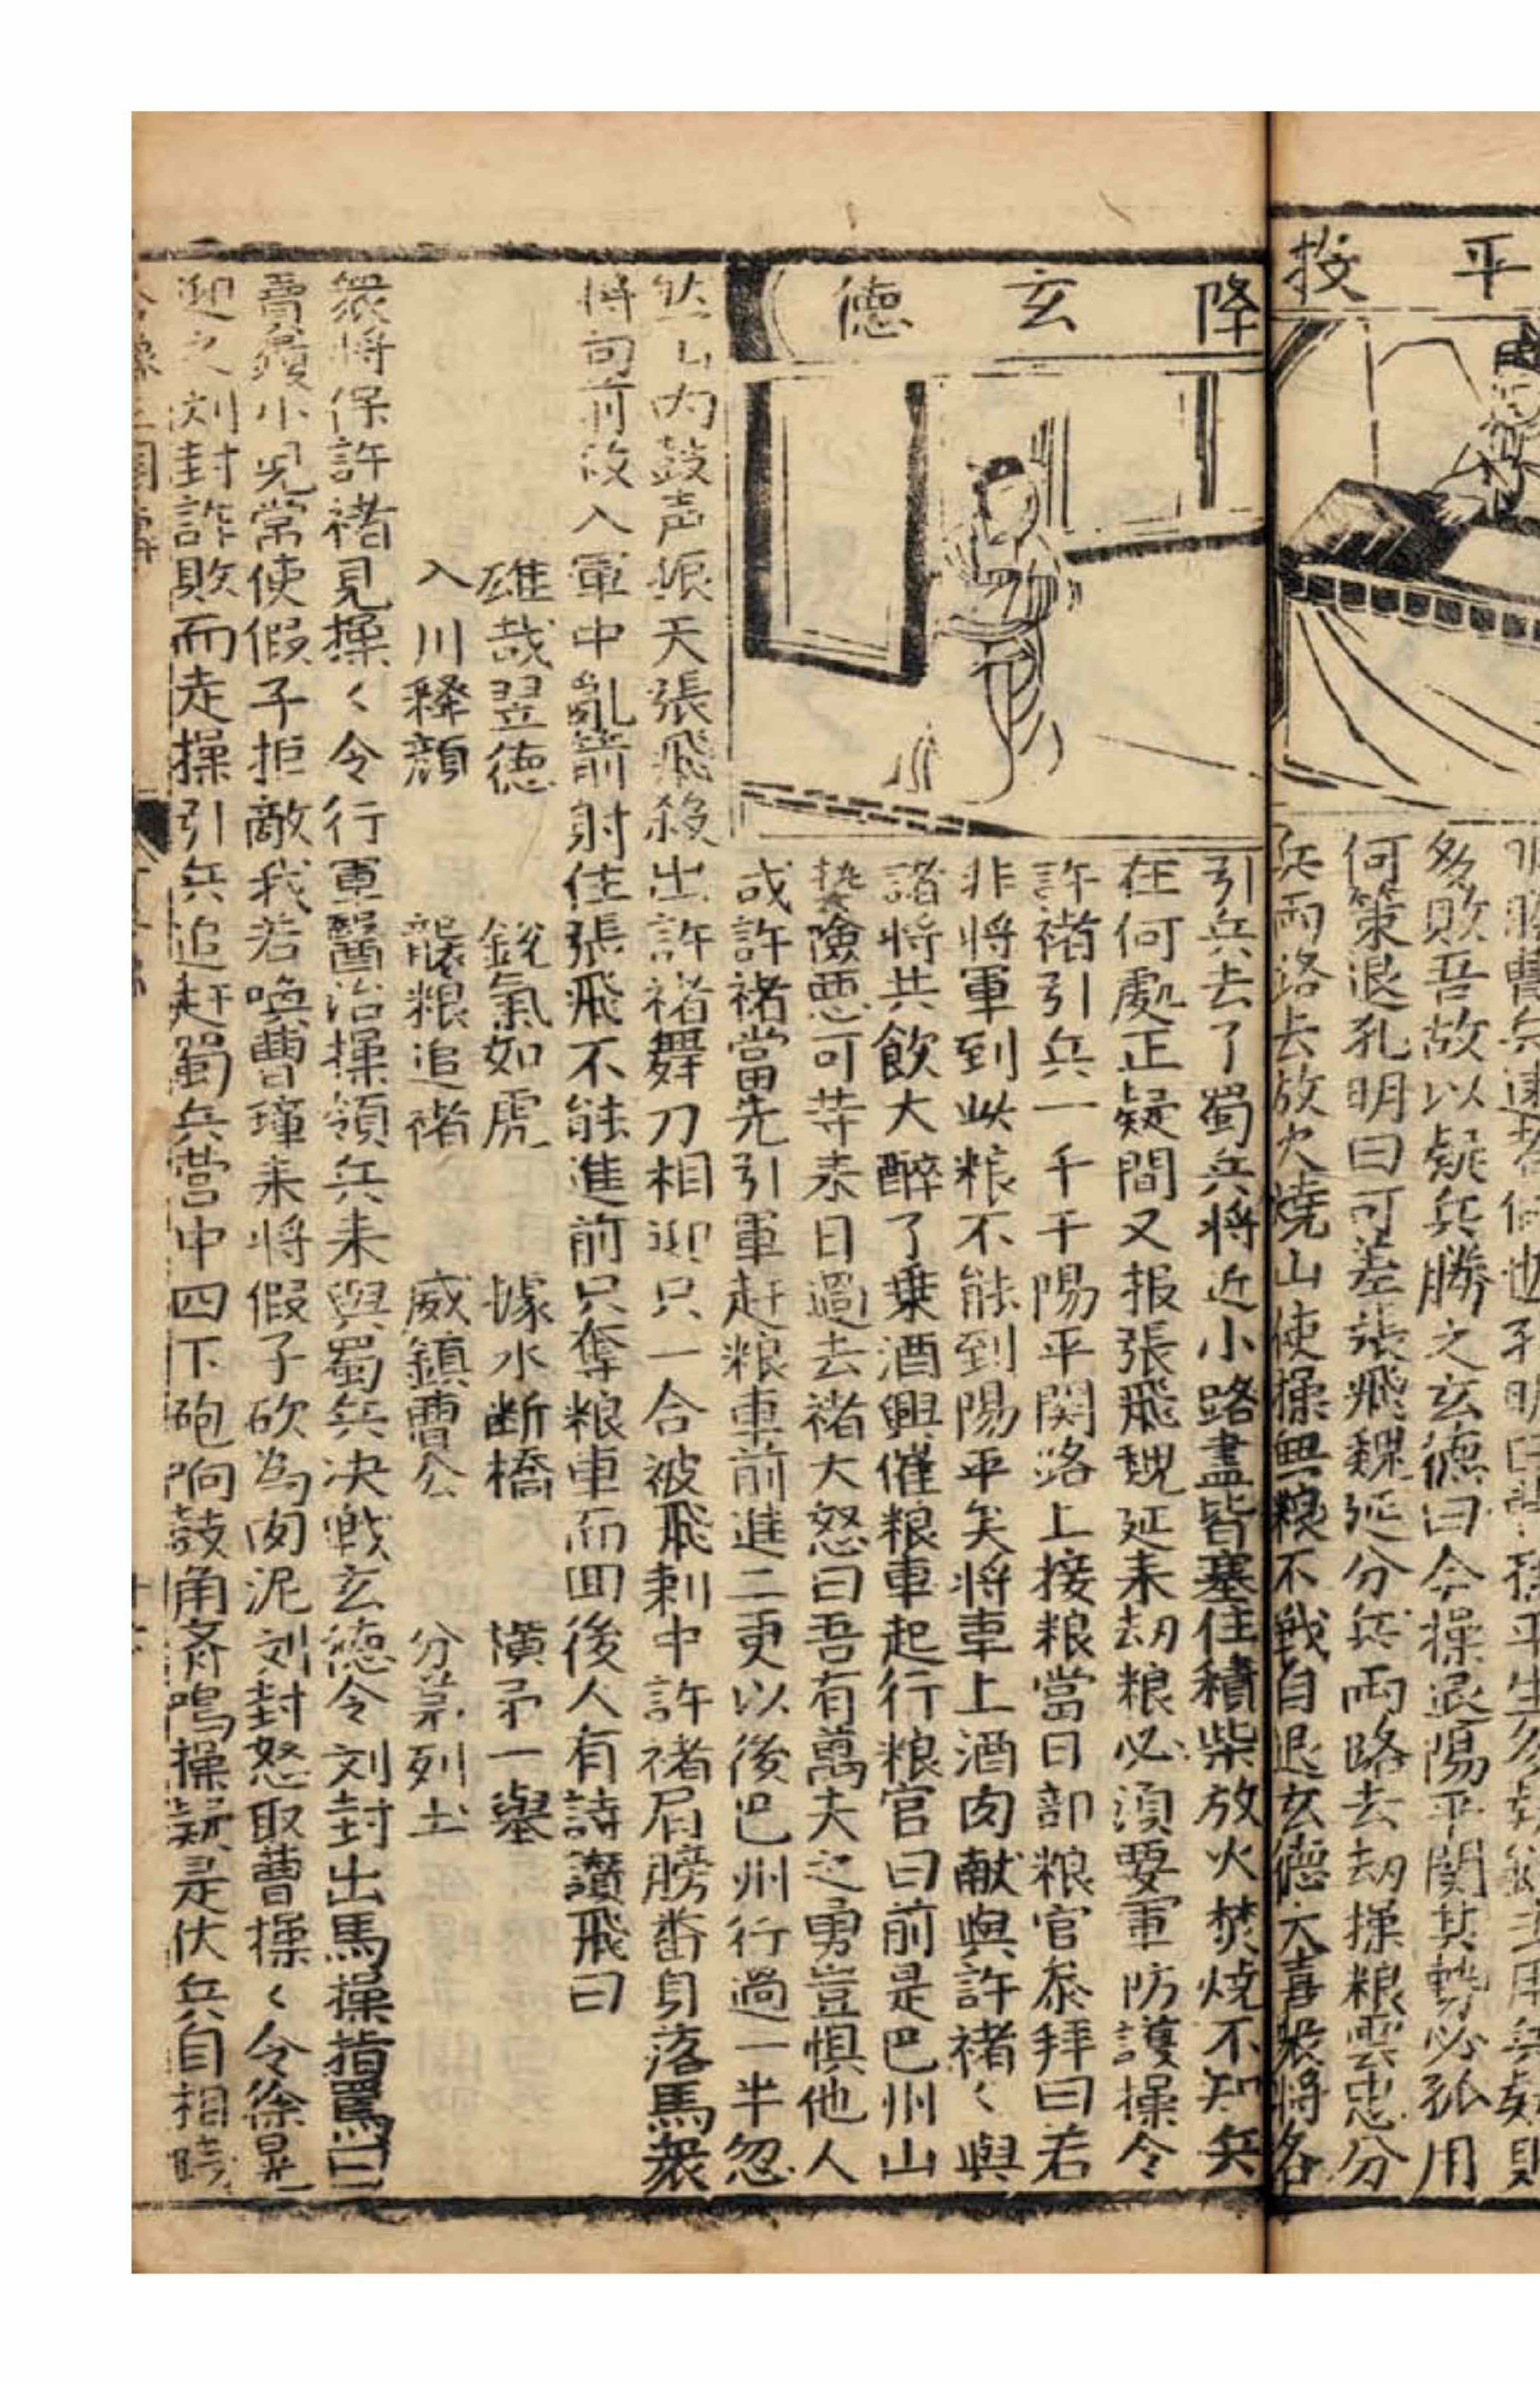 平 投
降 玄 德
多敗吾故以疑兵勝之玄德曰今操退陽平関其勢必孤用
何策退孔明曰可差張飛魏延分兵兩路去刼操粮雲忠分
兵兩路去放火燒山使操無粮不戰自退玄德大喜衆將各
引兵去了蜀兵將近小路盡皆塞住積柴放火焚燒不知兵
在何處正疑間又报張飛魏延来刼粮必須要軍防護操令
許褚引兵一千千陽平関路上接粮當日部粮官叅拜曰若
非將軍到此粮不能到陽平矣將車上酒肉献與許褚〻與
諸將共飲大醉了乗酒興催粮車起行粮官曰前是巴州山
勢險悪可等来日過去褚大怒曰吾有萬夫之勇豈惧他人
或許褚當先引軍赶粮車前進二更以後巴州行過一半忽
然山内鼓声振天張飛殺出許褚舞刀相迎只一合被飛刺中許褚肩膀番身落馬衆
將向前救入軍中亂箭射住張飛不能進前只奪粮車而回後人有詩讃飛曰
雄哉翌德 銳氣如虎 據水断橋 横矛一舉
入川釋顔 襲粮追褚 威鎮曹公 分茅列土
衆將保許褚見操〻令行軍醫治操領兵来與蜀兵决戰玄德令刘封出馬操指罵曰
賣履小児常使假子拒敵我若喚曹璋来將假子砍為肉泥刘封怒取曹操〻令徐晃
迎之刘封詐敗而走操引兵追赶蜀兵營中四下砲响鼓角齐鳴操疑是伏兵自相